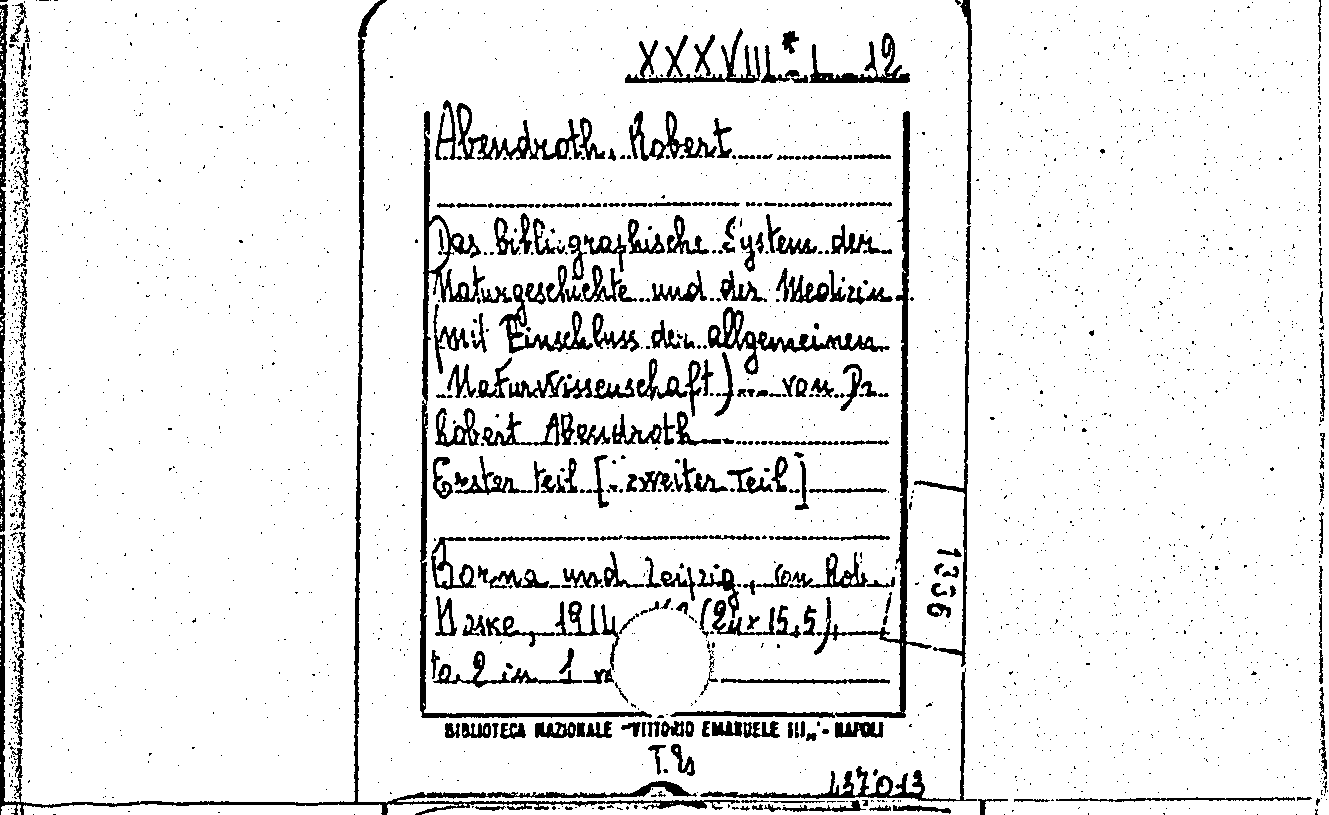 XXXVIII* L 12
Abendroth, Robert
Das bibliographische System der
Naturgeschichte und der Medizin
(mit Einschluss der allgemeinen
Naturwissenschaft) ... von Dr
Robert Abendroth
Erster teil [-zweiter Teil]
Borna und Leipzig, Rob.
Noske, 1914 (24x15,5),
to. 2 in 1
1336
BIBLIOTECA NAZIONALE "VITTORIO EMANUELE III„ - NAPOLI
437013